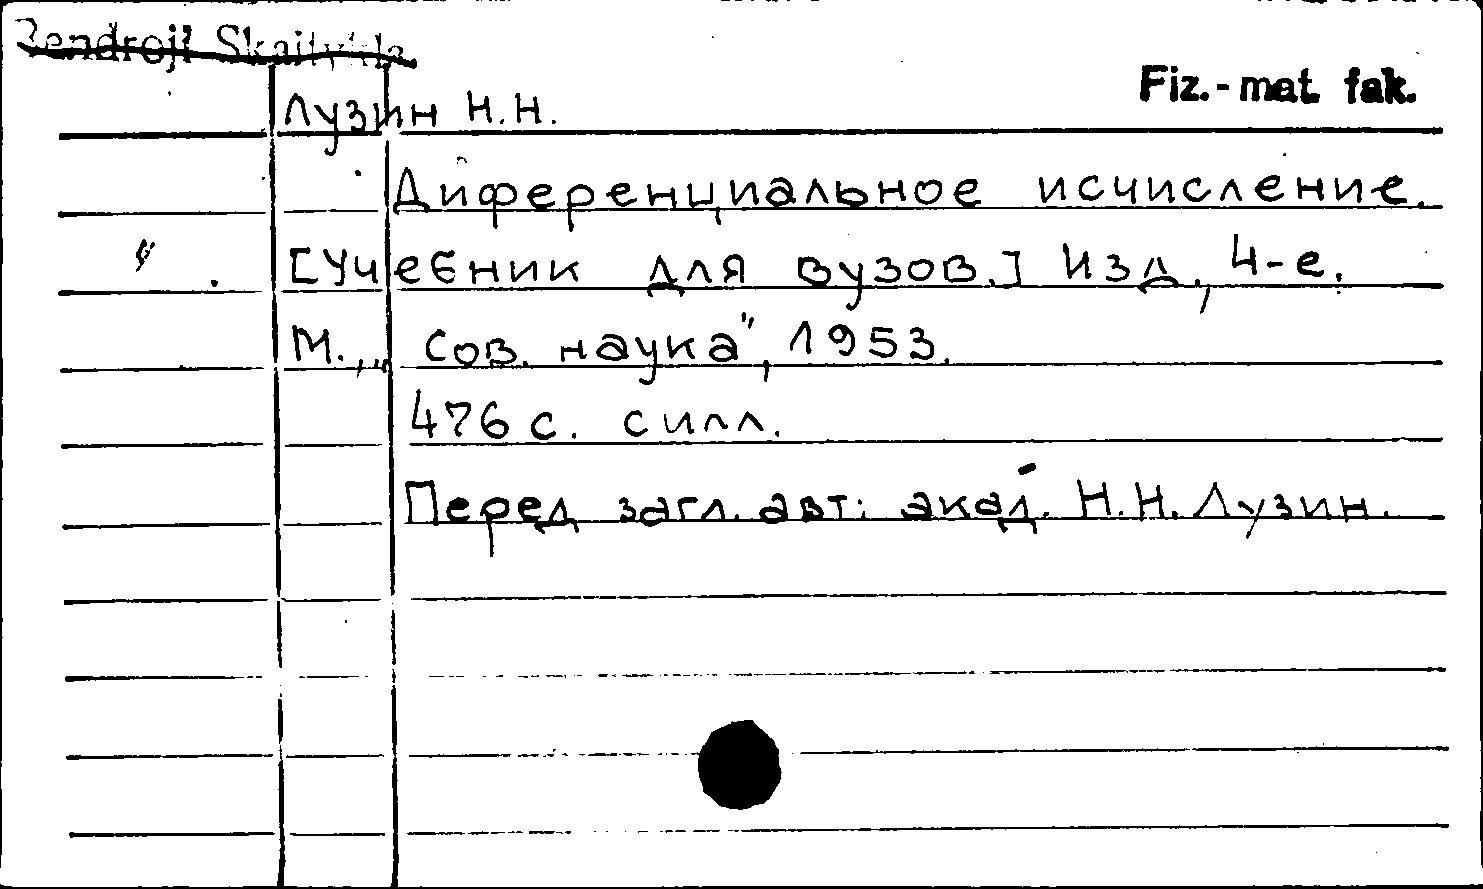 Bendroji Skaitykla
Fiz.-mat. fak.
Лузин Н.Н.
Диференциальное исчисление.
[Учебник для вузов.] Изд., 4-е.
М., „Сов. наука", 1953.
476 с. с илл.
Перед загл. авт: акад. Н.Н. Лузин.